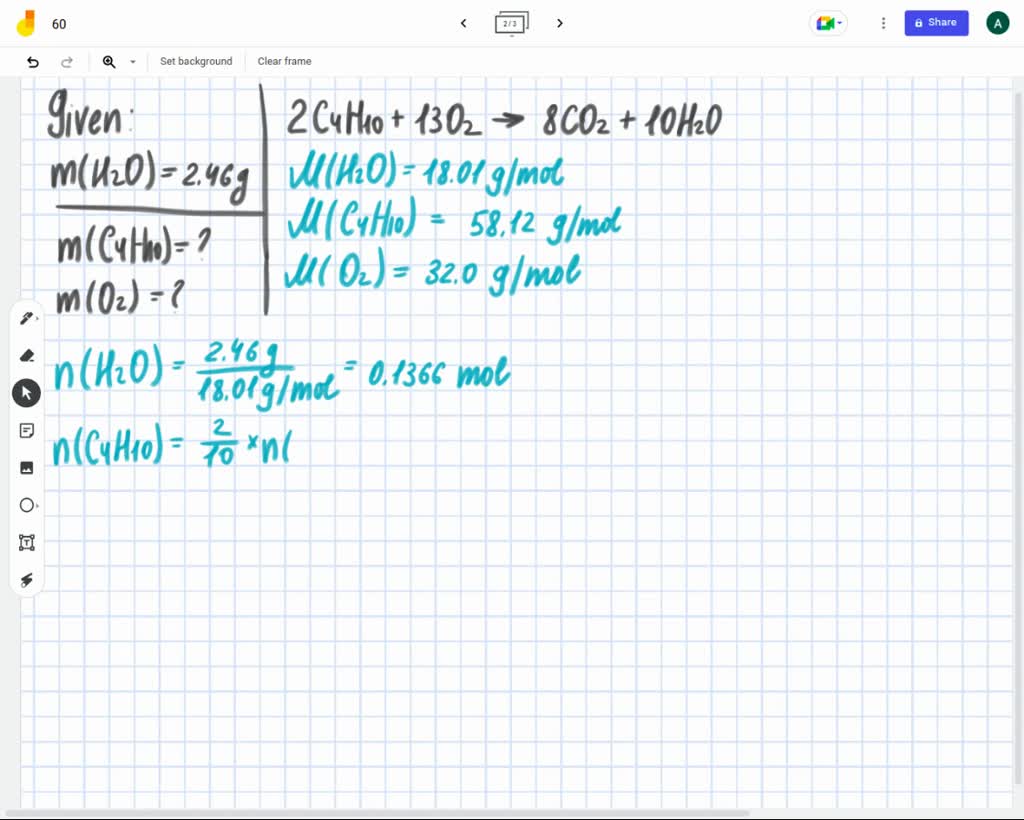 60
2/3
Share
A
Set background
Clear frame
Given:
m(H₂O) = 2.46g
m(C₄H₁₀) = ?
m(O₂) = ?
2C₄H₁₀ + 13O₂ → 8CO₂ + 10H₂O
M(H₂O) = 18.01 g/mol
M(C₄H₁₀) = 58.12 g/mol
M(O₂) = 32.0 g/mol
n(H₂O) = 2.46g / 18.01g/mol = 0.1366 mol
n(C₄H₁₀) = 2/10 × n(